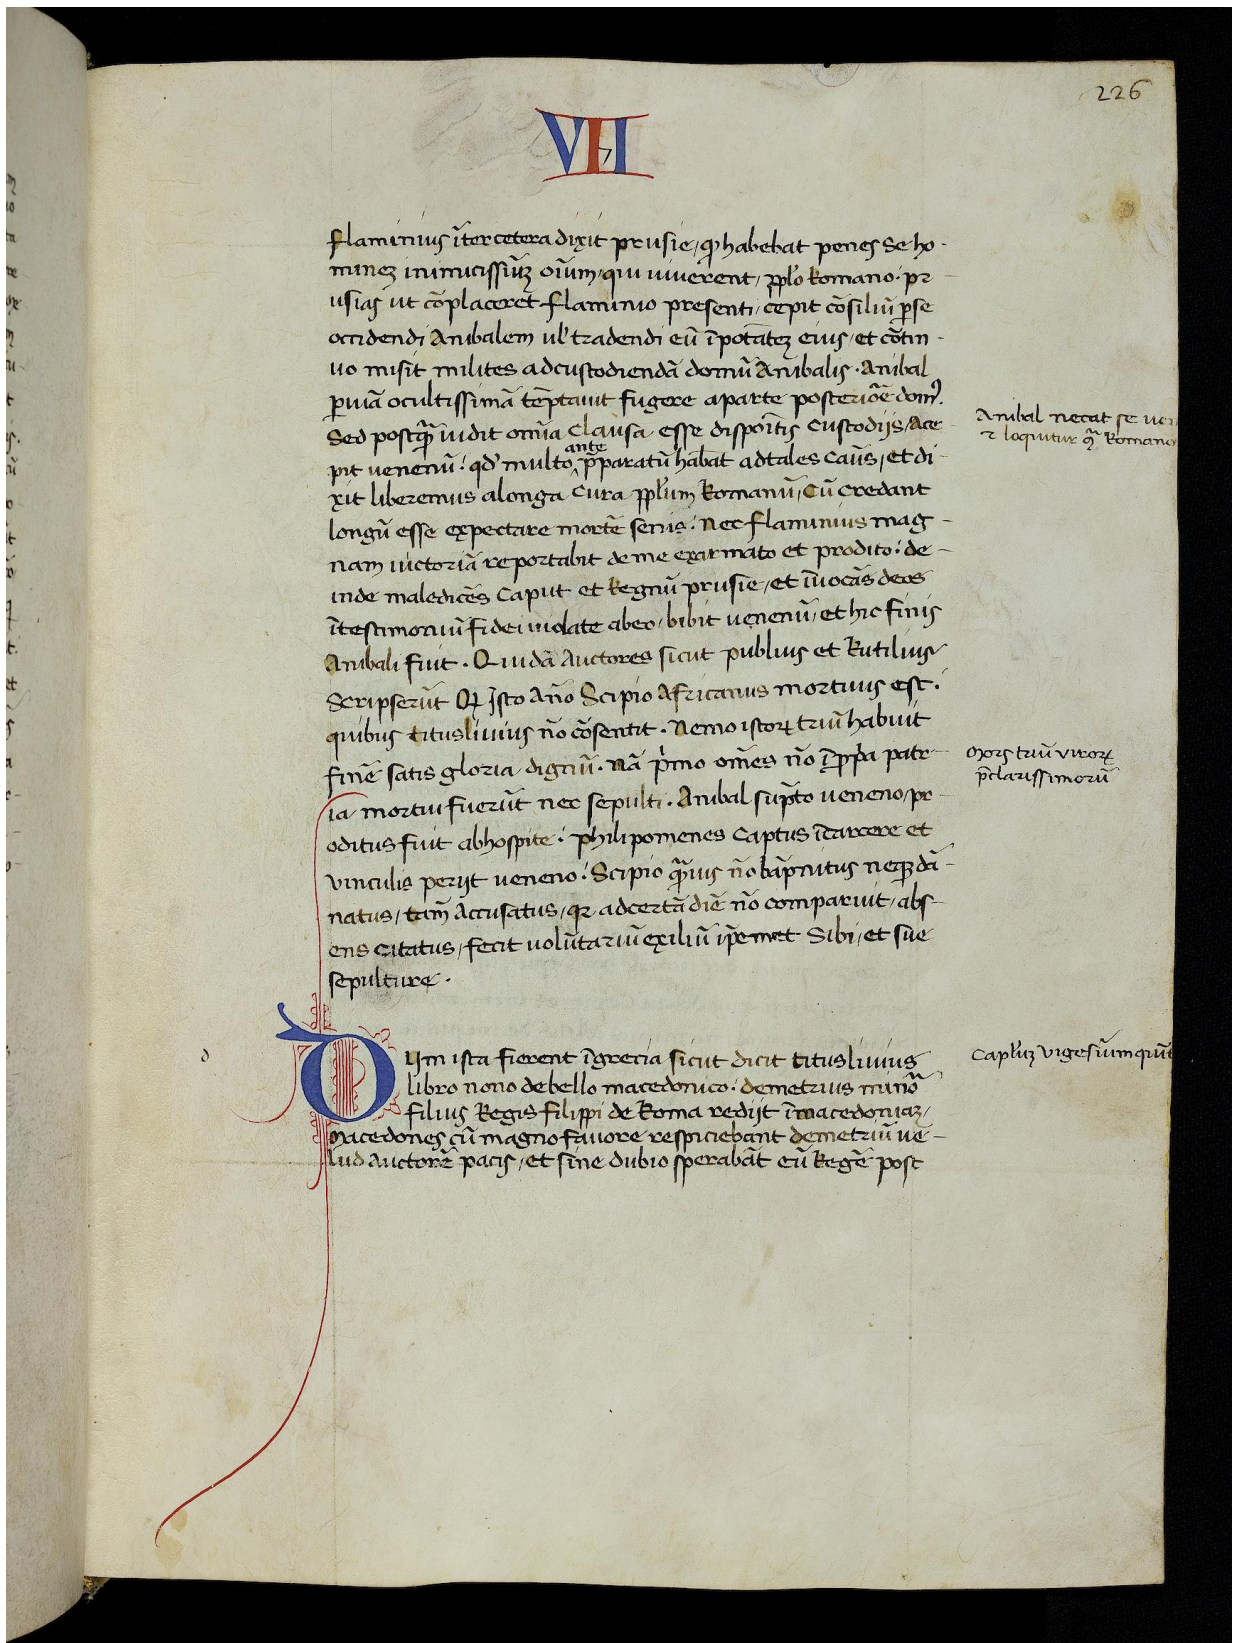 226
VII
flaminius ĩter cetera dixit prusie, ꝙ habebat penes se ho-
minez inimicissiũz oĩum, qui uiuerent, ꝓplo Romano. pr-
usias ut cõplaceret flaminio presenti, cepit cõsiliũ ꝑ se
occidendi Anibalem ul' tradendi eũ ĩ potãtez eius, et cõtin-
uo misit milites ad custodiendã domũ Anibalis. Anibal
ꝑ uiã ocultissimã tẽptauit fugere a parte posteriõe domꝰ.
Sed postq̃ uidit omia clausa esse dispoĩtis custodijs, Ace-
pit uenenũ: qd' multo ante p̃paratũ hab̃at ad tales caũs, et di-
xit liberemus a longa cura pplũm Romanũ, Cũ credant
longũ esse expectare mortẽ senis: Nec flaminius mag-
nam uictoriã reportabit de me exarmato et prodito: de-
inde maledicẽs caput et Regnũ prusie, et ĩuocãs deos
ĩ testimoniũ fidei uiolate ab eo, bibit uenenũ, et hic finis
Anibali fuit. Quidã Auctores sicut publius et Rutilius
Scripserũt Qꝫ Isto Año Scipio Africanus mortuus est.
quibus titus liuius ño cõsentit. Nemo istoꝝ triũ habuit
finẽ satis gloria dignũ. Nã p'mo om̃es ño ĩ ꝓp'a patr-
ia mortui fuerũt nec sepulti. Anibal sũpto ueneno, pr-
oditus fuit ab hospite: philipomenes captus ĩ carcere et
vinculis perijt ueneno: Scipio q̃uis ño bãpnitus neqꝫ dã-
natus, tam̃ Accusatus, qꝛ ad certã diẽ ño comparuit, abs-
ens citatus, fecit uolũtariũ exiliũ ip̃emet Sibi, et sue
sepulture.
d
DUm ista fierent ĩ grecia sicut dicit titus liuius
libro nono de bello macedonico: demetrius minõ
filius Regis filippi de Roma redijt ĩ macedoniaz,
Macedones cũ magno fauore respiciebant demetriũ ue-
lud Auctorẽ pacis, et sine dubio sperabãt eũ Regẽ post
Anibal necat se uen
⁊ loquitur Romanos
Mors triũ virorꝝ
p̃clarissimorũ
Caplũz vigesiũm quĩt